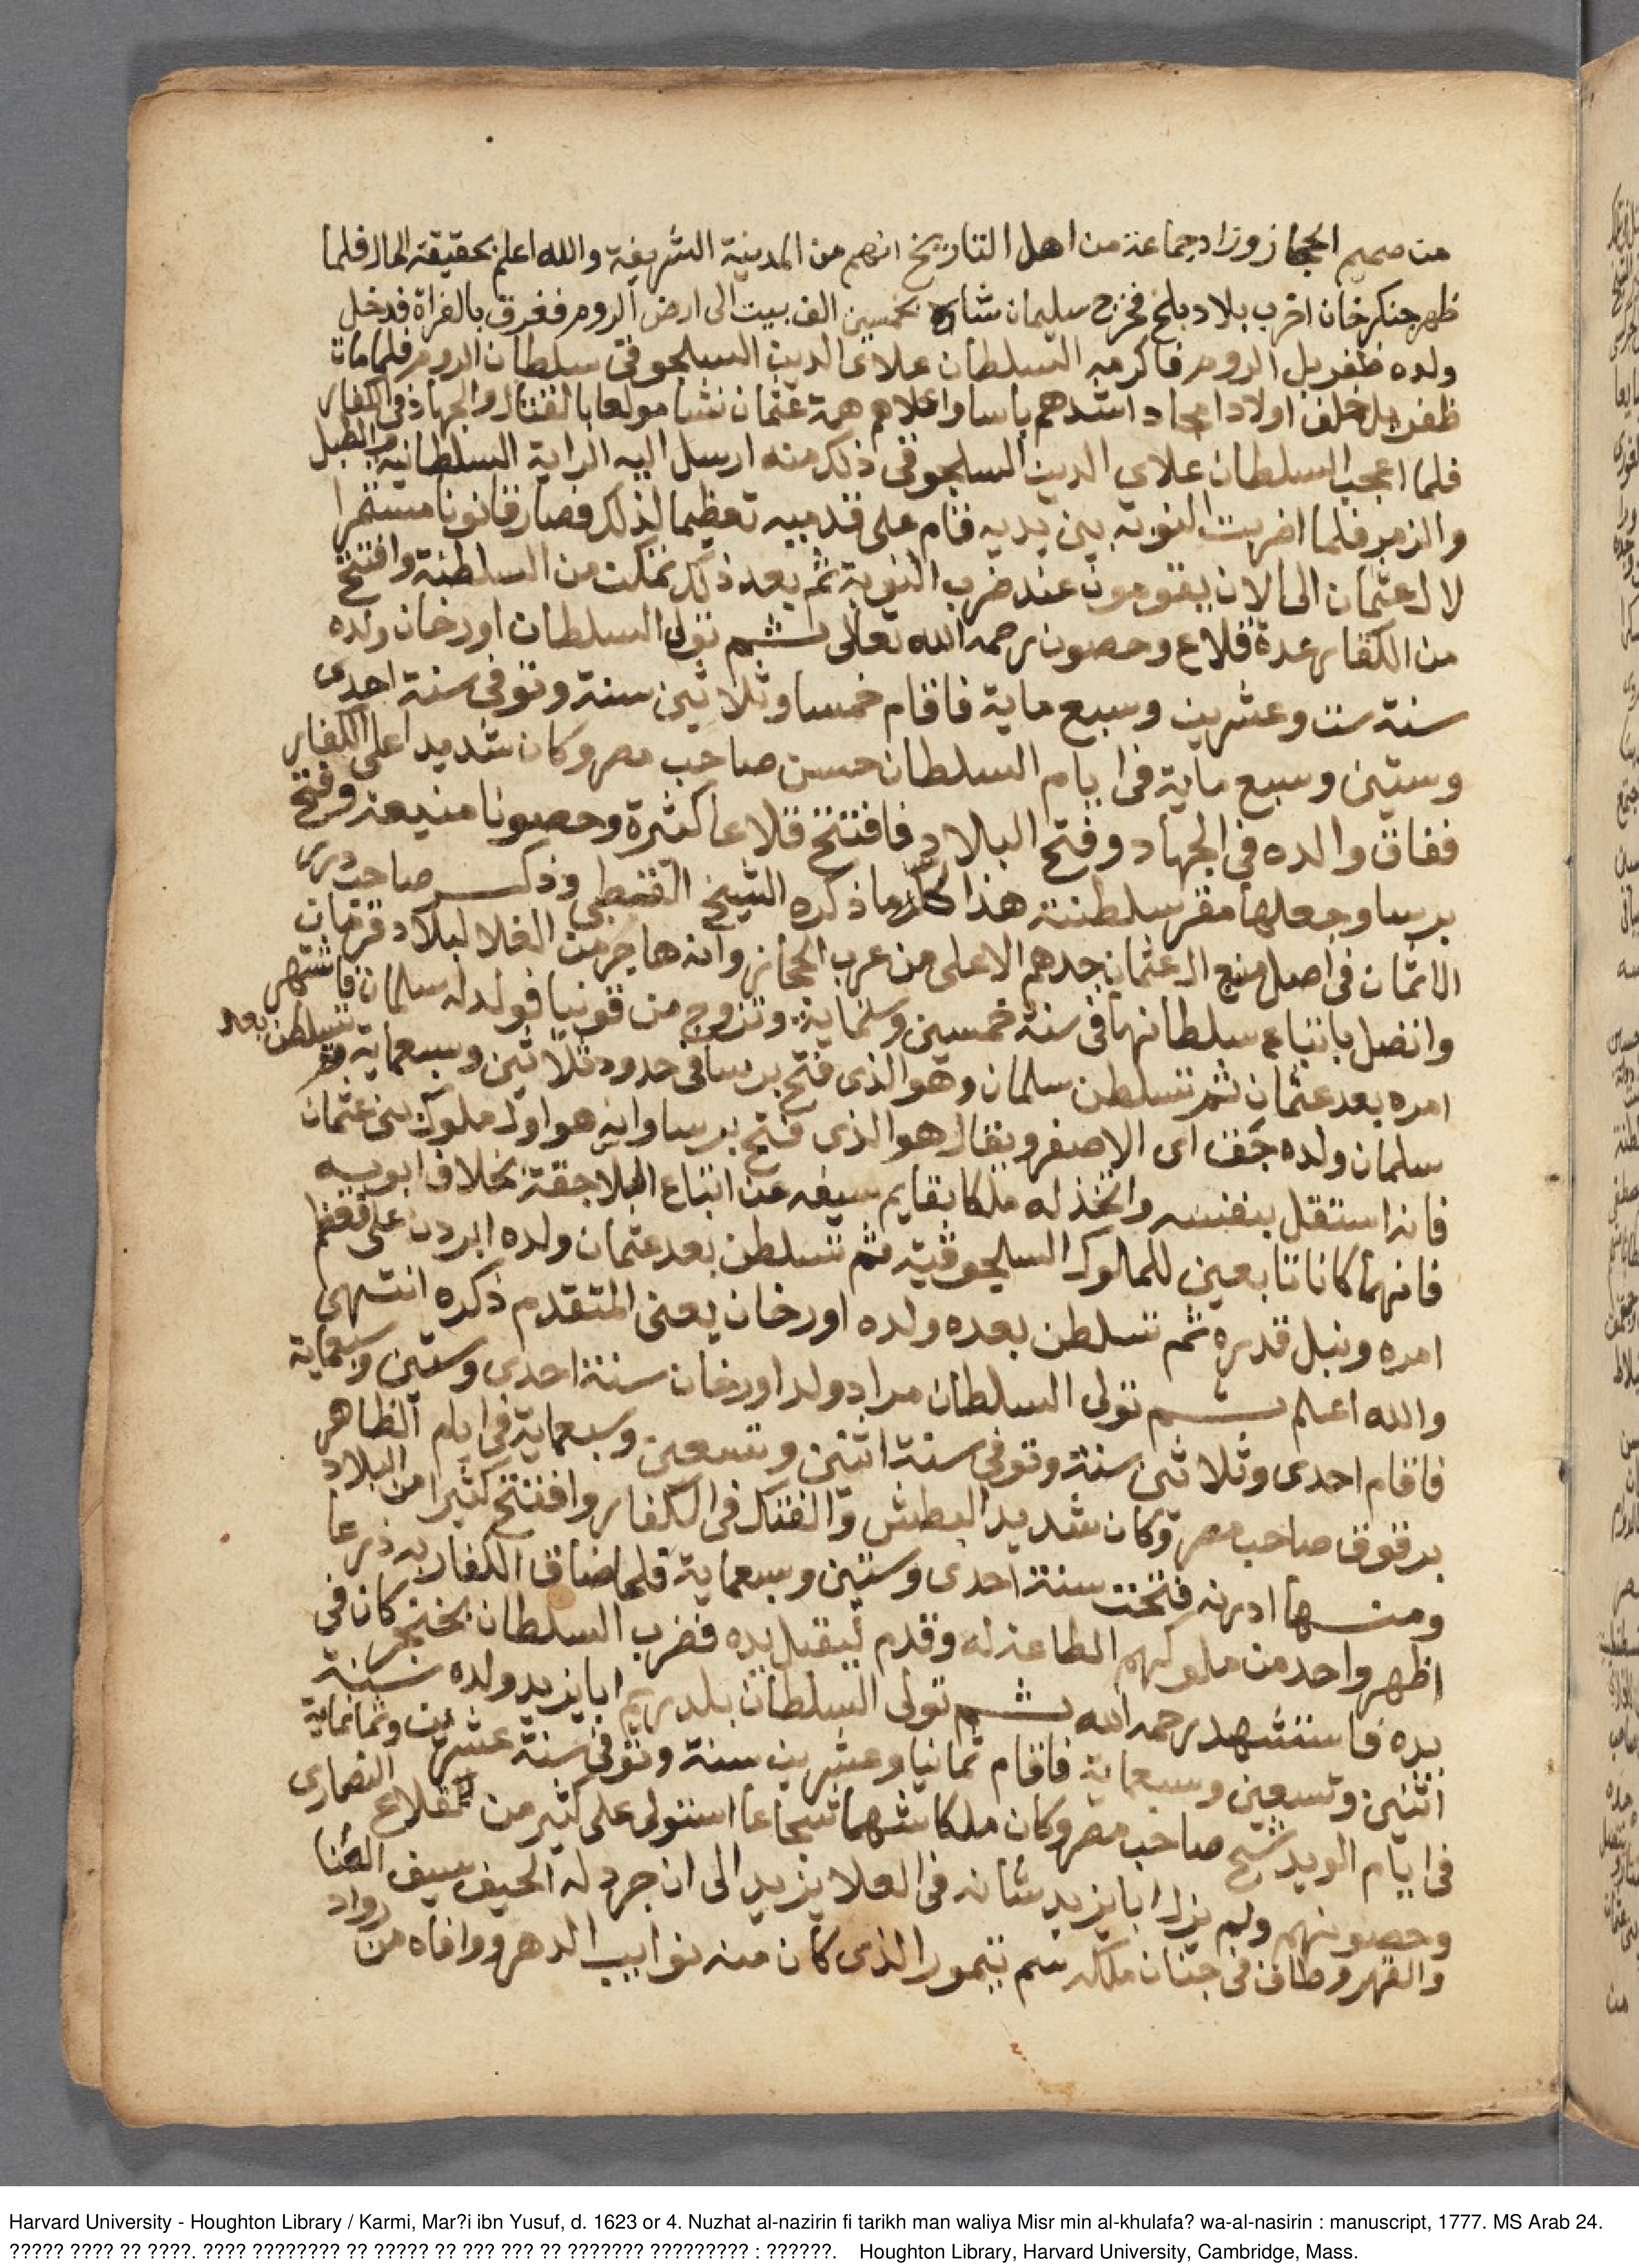 من صميم الحجاز وزاد جماعة من اهل التاريخ انهم من المدينة الشريفة والله اعلم بحقيقة الحال فلما
ظهر جنكزخان اخرب بلاد بلخ فخرج سليمان شاه بخمسين الف بيت الى ارض الروم فغرق بالفراة فدخل
ولده طغربل الروم فاكرمه السلطان علاى الدين السلجوقى سلطان الروم فلما مات
طغربل خلف اولادا امجاد اشدهم باسا واعلاهم همة عثمان نشا مولعا بالقتال والجهاد فى الكفار
فلما اعجب السلطان علاي الدين السلجوقى ذلك منه ارسل اليه الراية السلطانية والطبل
والزمر فلما اضربت النوبة بين يديه قام على قدميه تعظيما لذلك فصار قانونا مستمرا
لال عثمان الى الان يقومون عند ضرب النوبة ثم بعد ذلك تمكن من السلطنة وافتتح
من الكفار عدة قلاع وحصون رحمه الله تعالى ثم تولى السلطان اورخان ولده
سنة ست وعشرين وسبع ماية فاقام خمسا وثلاثين سنة وتوفى سنة احدى
وستين وسبع ماية فى ايام السلطان حسن صاحب مصر وكان شديدا على الكفار
ففاق والده فى الجهاد وفتح البلاد فافتتح قلاعا كثيرة وحصونا منيعة وفتح
برسا وجعلها مقر سلطنته هذا ما ذكره الشيخ القطبي وذكر صاحب درر
الاثمان فى اصل منبع ال عثمان جدهم الاعلى من عرب الحجاز وانه هاجر من الغلا لبلاد قرمان
واتصل باتباع سلطانها فى سنة خمسين وستماية وتزوج من قونيا فولد له سلمان فاشتهر
امره بعد عثمان ثم تسلطن سلمان وهو الذى فتح برسا فى حدود ثلاثين وسبعماية ثم تسلطن بعد
سلمان ولده جق اى الاصفر ويقال هو الذى فتح برسا وانه هو اول ملوك بنى عثمان
فانه استقل بنفسه واتخذ له ملكا بقايم سيفه عن اتباع السلاجقة بخلاف ابويه
فانهما كانا تابعين للملوك السلجوقية ثم تسلطن بعد عثمان ولده ابردن على فعظم
امره ونبل قدره ثم تسلطن بعده ولده اورخان يعنى المتقدم ذكره انتهى
والله اعلم ثم تولى السلطان مراد ولد اورخان سنة احدى وستين وسبعماية
فاقام احدى وثلاثين سنة وتوفى سنة اثنين وتسعين وسبعماية فى ايام الظاهر
برقوق صاحب مصر وكان شديد البطش والفتك فى الكفار وافتتح كثيرا من البلاد
ومنها ادرنه فتحت سنة احدى وستين وسبعماية فلما ضاق الكفار به ذرعا
اظهر واحد من ملوكهم الطاعة له وقدم ليقبل يده فضرب السلطان بخنجر كان فى
يده فاستشهد رحمه الله ثم تولى السلطان يلدريم ابايزيد ولده سنة
اثنين وتسعين وسبعماية فاقام ثمانيا وعشرين سنة وتوفى سنة عشرين وثمانماية
فى ايام الويد شيخ صاحب مصر وكان ملكا شهما شجاعا استولى على كثير من قلاع النصارى
وحصونهم ولم يزل ابايزيد شانه فى العلا يزيد الى ان جرد له الحيف سيف العنا
والقهر وطاف فى جنان ملكه سم تيمور الذى كان منه نوايب الدهر ووافاه من رواد